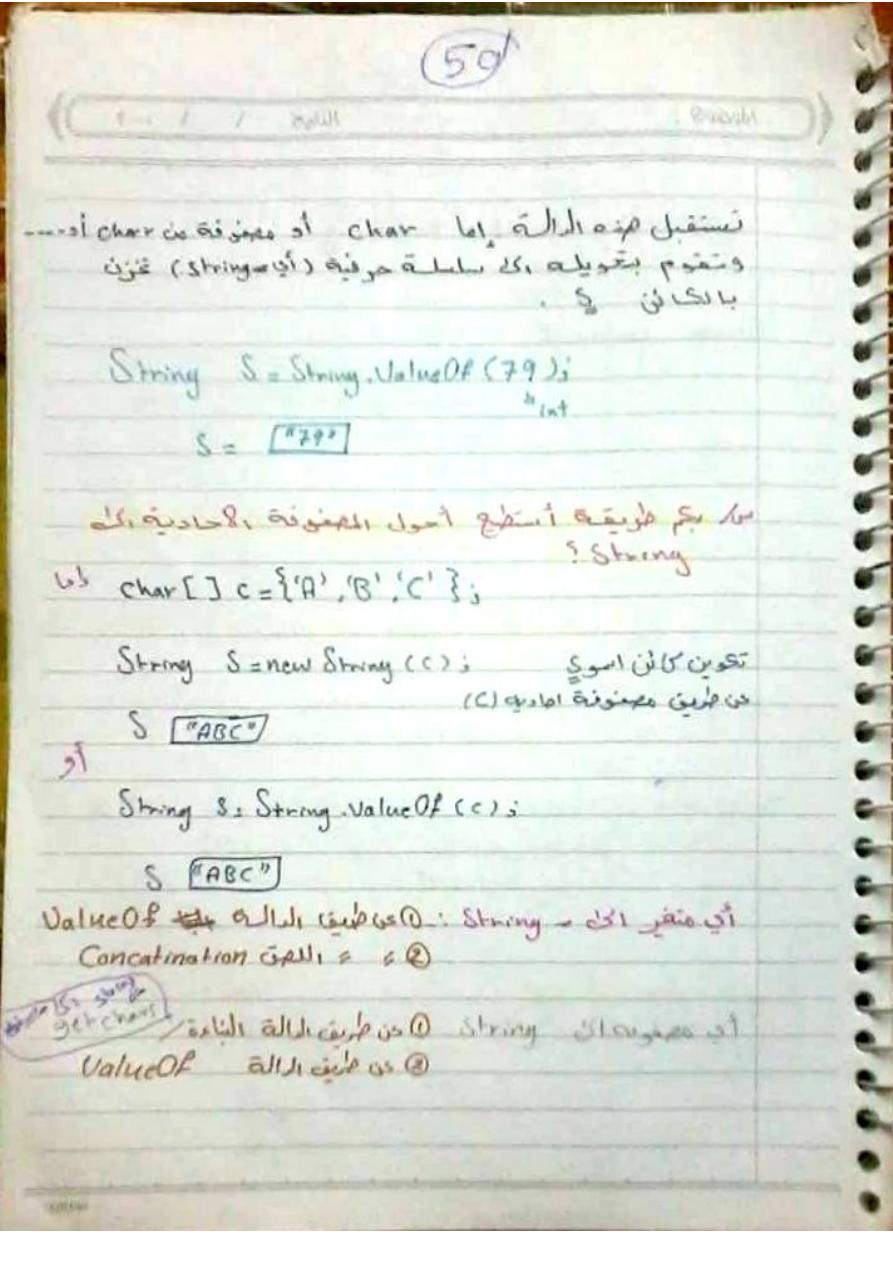 50
الموضوع التاريخ / /
تستقبل هذه الدالة إما char أو مصفوفة من char أو ----
وتقوم بتحويله الى سلسلة حرفية (أي String) تخزن
بالكائن S .
String S = String.ValueOf (79);
int
S = "79"
س/ بكم طريقة أستطيع أحول المصفوفة الاحادية الى
String ؟
إما
char [ ] c = {'A' , 'B' , 'C' };
String S = new String (c);
تكوين كائن اسمه S
عن طريق مصفوفة احادية (C)
S "ABC"
أو
String S = String.valueOf (c);
S "ABC"
أي متغير الى String : ① عن طريق الدالة ValueOf
② = = اللصق Concatination
أي مصفوفه الى String ① عن طريق الدالة البناءة /
String
getchars
② عن طريق الدالة ValueOf